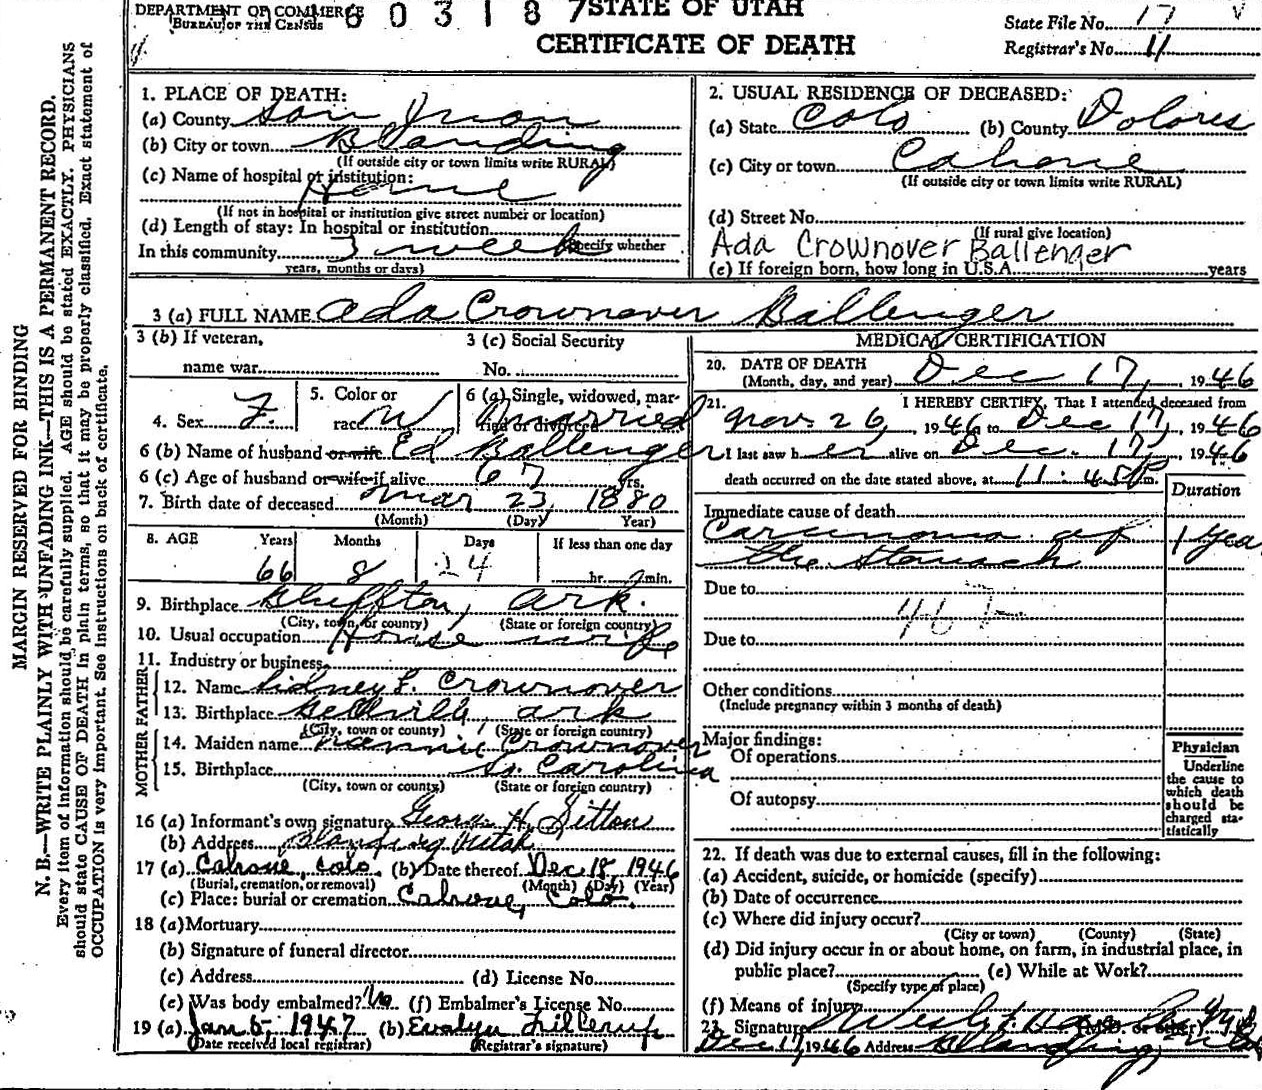 DEPARTMENT OF COMMERCE
BUREAU OF THE CENSUS
603187
STATE OF UTAH
CERTIFICATE OF DEATH
State File No. 17
Registrar's No. 11
MARGIN RESERVED FOR BINDING
N. B.—WRITE PLAINLY WITH UNFADING INK—THIS IS A PERMANENT RECORD.
Every item of information should be carefully supplied. AGE should be stated EXACTLY. PHYSICIANS
should state CAUSE OF DEATH in plain terms, so that it may be properly classified. Exact statement of
OCCUPATION is very important. See instructions on back of certificate.
1. PLACE OF DEATH:
(a) County San Juan
(b) City or town Blanding
(If outside city or town limits write RURAL)
(c) Name of hospital or institution:
Home
(If not in hospital or institution give street number or location)
(d) Length of stay: In hospital or institution
In this community 3 weeks (Specify whether
years, months or days)
2. USUAL RESIDENCE OF DECEASED:
(a) State Colo (b) County Dolores
(c) City or town Cahone
(If outside city or town limits write RURAL)
(d) Street No.
(If rural give location)
Ada Crownover Ballenger
(e) If foreign born, how long in U.S.A. years
3 (a) FULL NAME Ada Crownover Ballenger
3 (b) If veteran,
name war
3 (c) Social Security
No.
4. Sex F.
5. Color or
race W
6 (a) Single, widowed, mar-
ried or divorced Married
6 (b) Name of husband or wife Ed Ballenger
6 (c) Age of husband or wife if alive 67 yrs.
7. Birth date of deceased Mar 23, 1880
(Month) (Day) Year)
8. AGE Years Months Days If less than one day
66 8 24 hr. min.
9. Birthplace Bluffton, Ark.
(City, town, or county) (State or foreign country)
10. Usual occupation House wife
11. Industry or business
FATHER
12. Name Sidney F. Crownover
13. Birthplace Bellville, Ark
(City, town or county) (State or foreign country)
MOTHER
14. Maiden name Nannie Crownover
15. Birthplace So. Carolina
(City, town or county) (State or foreign country)
16 (a) Informant's own signature George H. Sitton
(b) Address Blanding Utah
17 (a) Cahone, Colo. (b) Date thereof Dec 18, 1946
(Burial, cremation, or removal) (Month) (Day) (Year)
(c) Place: burial or cremation Cahone, Colo.
18 (a) Mortuary
(b) Signature of funeral director
(c) Address (d) License No.
(e) Was body embalmed? No (f) Embalmer's License No.
19 (a) Jan 5, 1947 (b) Evalyn
(Date received local registrar) (Registrar's signature)
MEDICAL CERTIFICATION
20. DATE OF DEATH
(Month, day, and year) Dec 17, 1946
21. I HEREBY CERTIFY, That I attended deceased from
Nov. 26, 1946 to Dec 17, 1946
I last saw her alive on Dec. 17, 1946
death occurred on the date stated above, at 11:45 P m.
Duration
Immediate cause of death
Carcinoma of 1 year
the Stomach
Due to
Due to
Other conditions
(Include pregnancy within 3 months of death)
Major findings:
Of operations
Of autopsy
Physician
Underline
the cause to
which death
should be
charged sta-
tistically
22. If death was due to external causes, fill in the following:
(a) Accident, suicide, or homicide (specify)
(b) Date of occurrence
(c) Where did injury occur?
(City or town) (County) (State)
(d) Did injury occur in or about home, on farm, in industrial place, in
public place? (e) While at Work?
(Specify type of place)
(f) Means of injury
23. Signature (M.D. or other)
Dec 17, 1946 Address Blanding, Utah